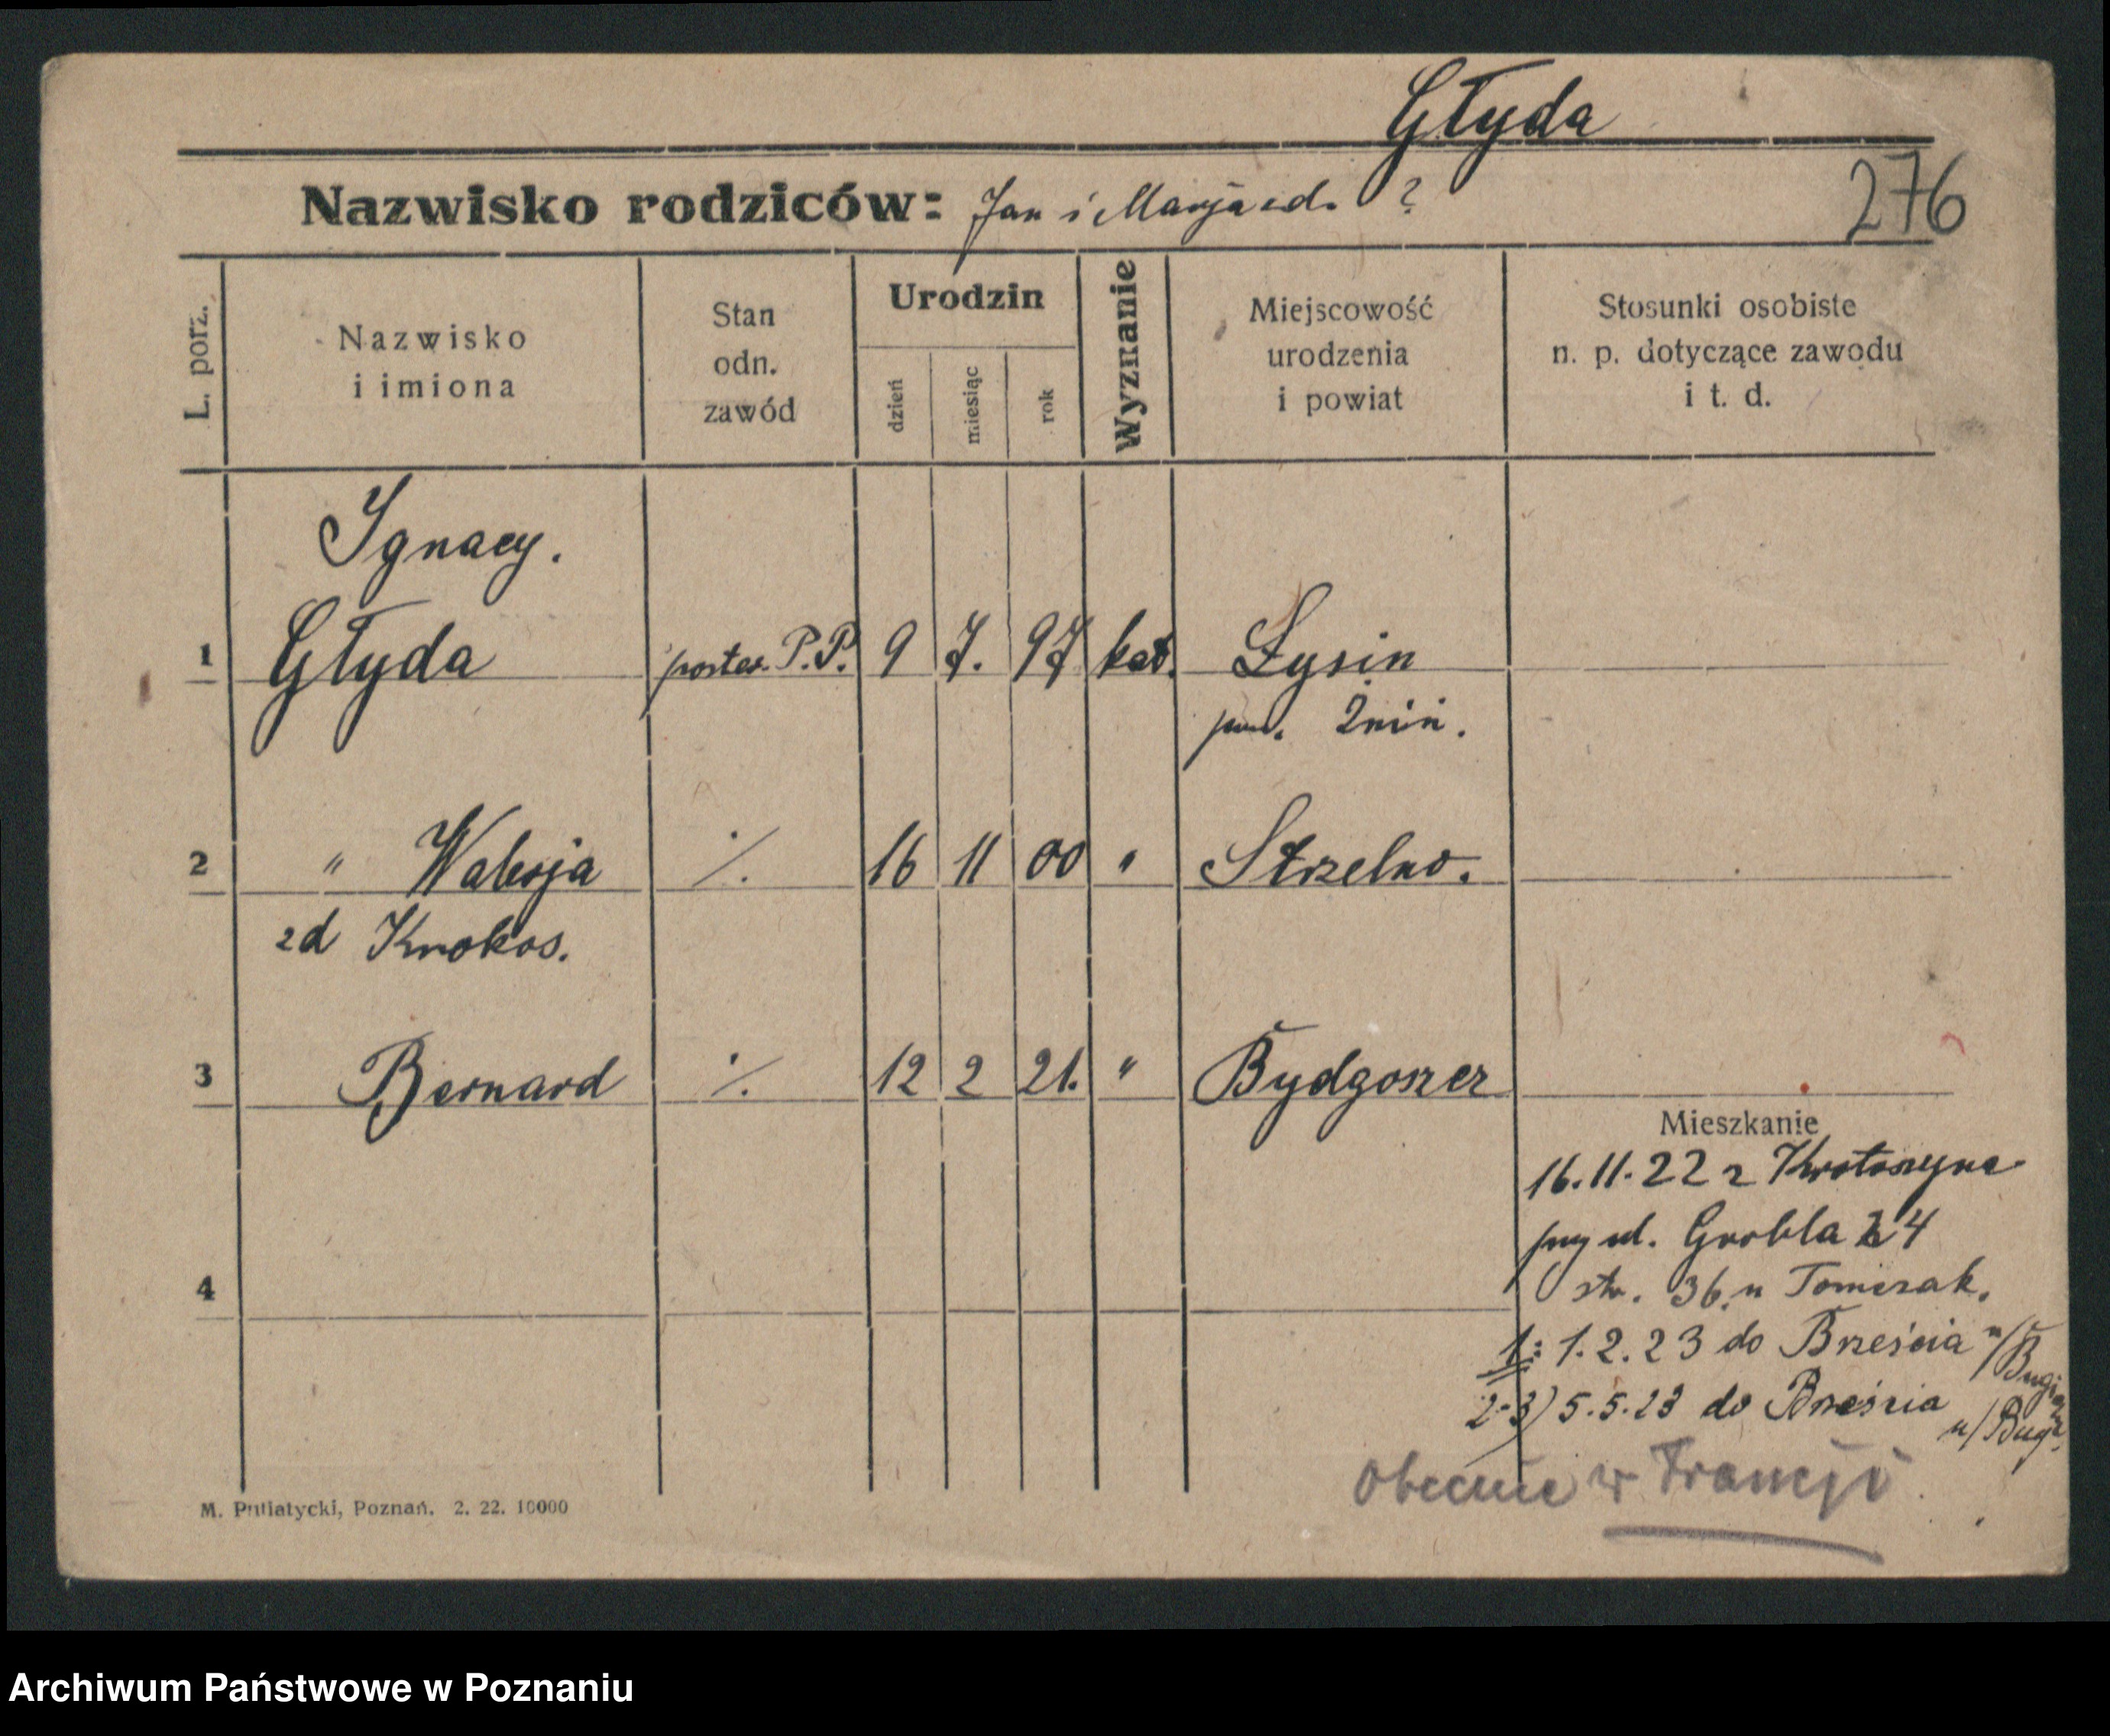 Głyda
276
Nazwisko rodziców: Jan i Marja zd. ?
L. porz.
Nazwisko
i imiona
Stan
odn.
zawód
Urodzin
dzień
miesiąc
rok
Wyznanie
Miejscowość
urodzenia
i powiat
Stosunki osobiste
n. p. dotyczące zawodu
i t. d.
Ignacy.
1 Głyda poster. P.P. 9 7. 97 kat. Łysin
pow. Żnin.
2 " Walerja ·/. 16 11 00 " Strzelno.
zd Krokos.
3 Bernard ·/. 12 2 21. " Bydgoszcz
Mieszkanie
16.11.22 z Krotoszyna
przy ul. Grobla 24
str. 36. u Tomczak.
4
1: 1.2.23 do Brześcia n/Bugiem
2-3) 5.5.23 do Brześcia n/Bug.
Obecnie w Francji
M. Putiatycki, Poznań. 2. 22. 10000
Archiwum Państwowe w Poznaniu